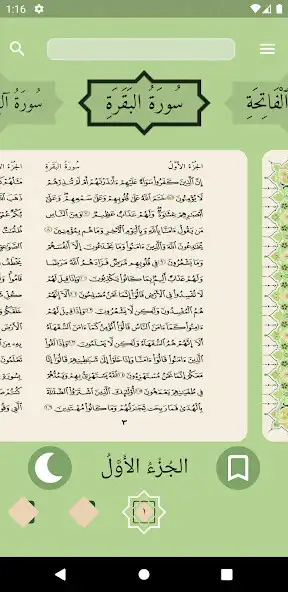 1:16
سُورَةُ البَقَرَةِ
الْفَاتِحَةِ
سُورَةُ
الجُزْءُ الأَوَّلُ
سُورَةُ البَقَرَةِ
إِنَّ الَّذِينَ كَفَرُوا سَوَاءٌ عَلَيْهِمْ ءَأَنذَرْتَهُمْ أَمْ لَمْ تُنذِرْهُمْ
لَا يُؤْمِنُونَ ٦ خَتَمَ اللَّهُ عَلَىٰ قُلُوبِهِمْ وَعَلَىٰ سَمْعِهِمْ وَعَلَىٰ
أَبْصَارِهِمْ غِشَاوَةٌ وَلَهُمْ عَذَابٌ عَظِيمٌ ٧ وَمِنَ النَّاسِ
مَن يَقُولُ ءَامَنَّا بِاللَّهِ وَبِالْيَوْمِ الْآخِرِ وَمَا هُم بِمُؤْمِنِينَ ٨
يُخَادِعُونَ اللَّهَ وَالَّذِينَ ءَامَنُوا وَمَا يَخْدَعُونَ إِلَّا أَنفُسَهُمْ
وَمَا يَشْعُرُونَ ٩ فِي قُلُوبِهِم مَّرَضٌ فَزَادَهُمُ اللَّهُ مَرَضًا
وَلَهُمْ عَذَابٌ أَلِيمٌ بِمَا كَانُوا يَكْذِبُونَ ١٠ وَإِذَا قِيلَ لَهُمْ
لَا تُفْسِدُوا فِي الْأَرْضِ قَالُوا إِنَّمَا نَحْنُ مُصْلِحُونَ ١١ أَلَا إِنَّهُمْ
هُمُ الْمُفْسِدُونَ وَلَٰكِن لَّا يَشْعُرُونَ ١٢ وَإِذَا قِيلَ لَهُمْ
ءَامِنُوا كَمَا ءَامَنَ النَّاسُ قَالُوا أَنُؤْمِنُ كَمَا ءَامَنَ السُّفَهَاءُ
أَلَا إِنَّهُمْ هُمُ السُّفَهَاءُ وَلَٰكِن لَّا يَعْلَمُونَ ١٣ وَإِذَا لَقُوا
الَّذِينَ ءَامَنُوا قَالُوا ءَامَنَّا وَإِذَا خَلَوْا إِلَىٰ شَيَاطِينِهِمْ قَالُوا إِنَّا
مَعَكُمْ إِنَّمَا نَحْنُ مُسْتَهْزِءُونَ ١٤ اللَّهُ يَسْتَهْزِئُ بِهِمْ وَيَمُدُّهُمْ
فِي طُغْيَانِهِمْ يَعْمَهُونَ ١٥ أُولَٰئِكَ الَّذِينَ اشْتَرَوُا الضَّلَالَةَ
بِالْهُدَىٰ فَمَا رَبِحَت تِّجَارَتُهُمْ وَمَا كَانُوا مُهْتَدِينَ ١٦
٣
الجُزْءُ الأَوَّلُ
١